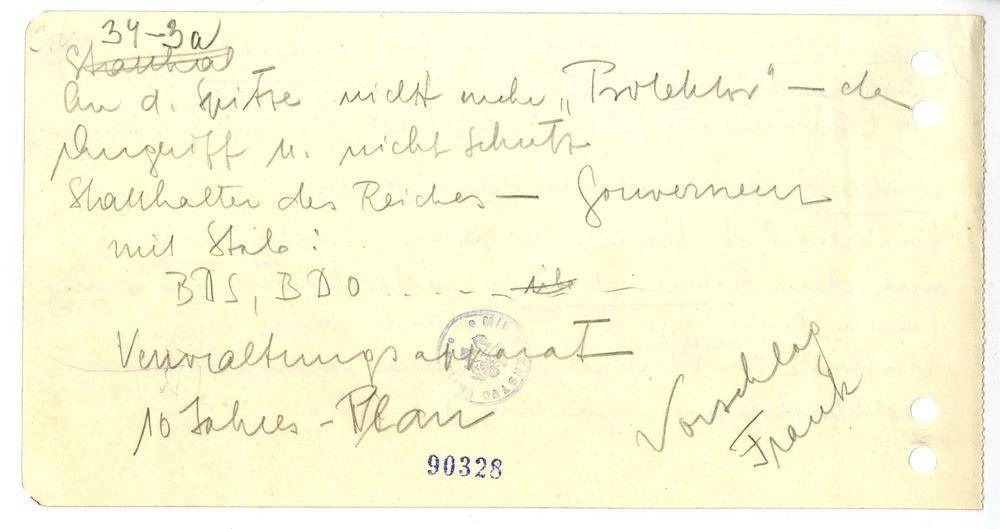 34-3a
An d. Spitze nicht mehr „Protektor" — da
Angriff u. nicht Schutz
Statthalter des Reiches — Gouverneur
mit Stab:
BDS, BDO . . . . –
Verwaltungsapparat
10 Jahres - Plan
Vorschlag
Frank
90328